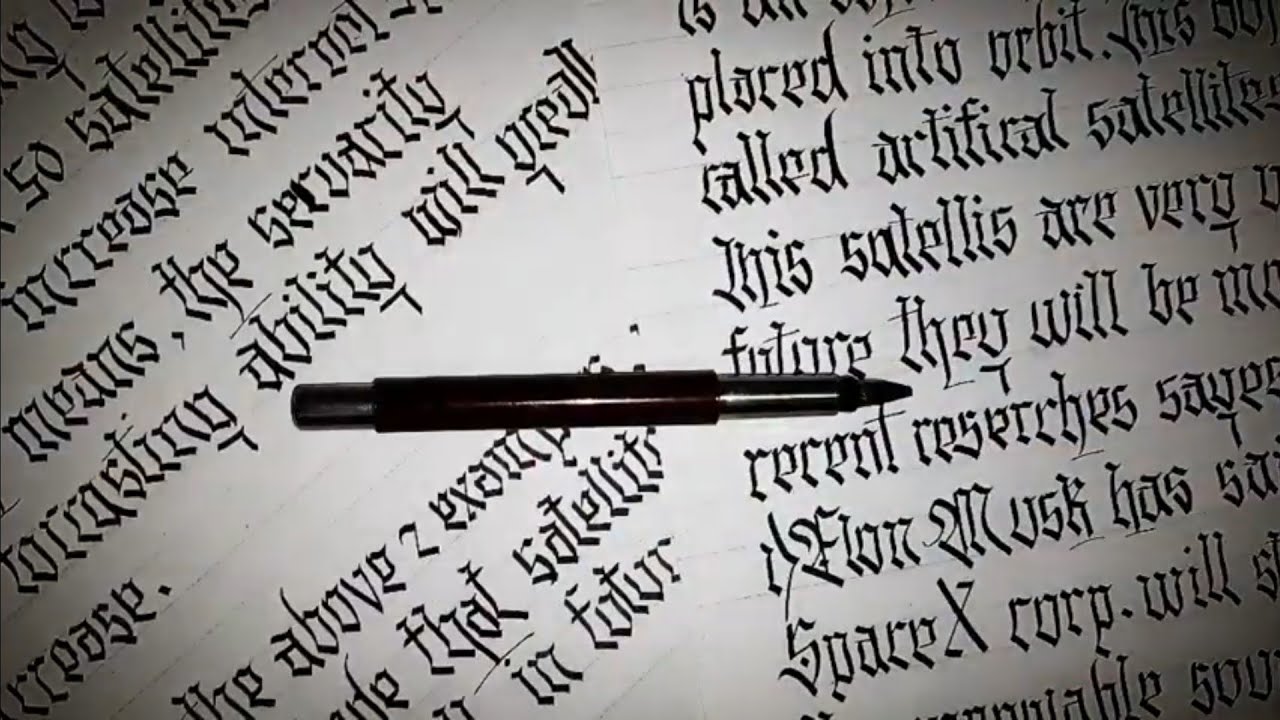 so satellites
increase internet
means, the servarity
forcasting ability will greatl
crease.
the above 2 examp
that satellits
in futur
is an
placed into orbit. This
called artifical satellites
This satellis are very
future they will be mo
recent reserches sayes
i) Elon Musk has sa
SpaceX corp. will s